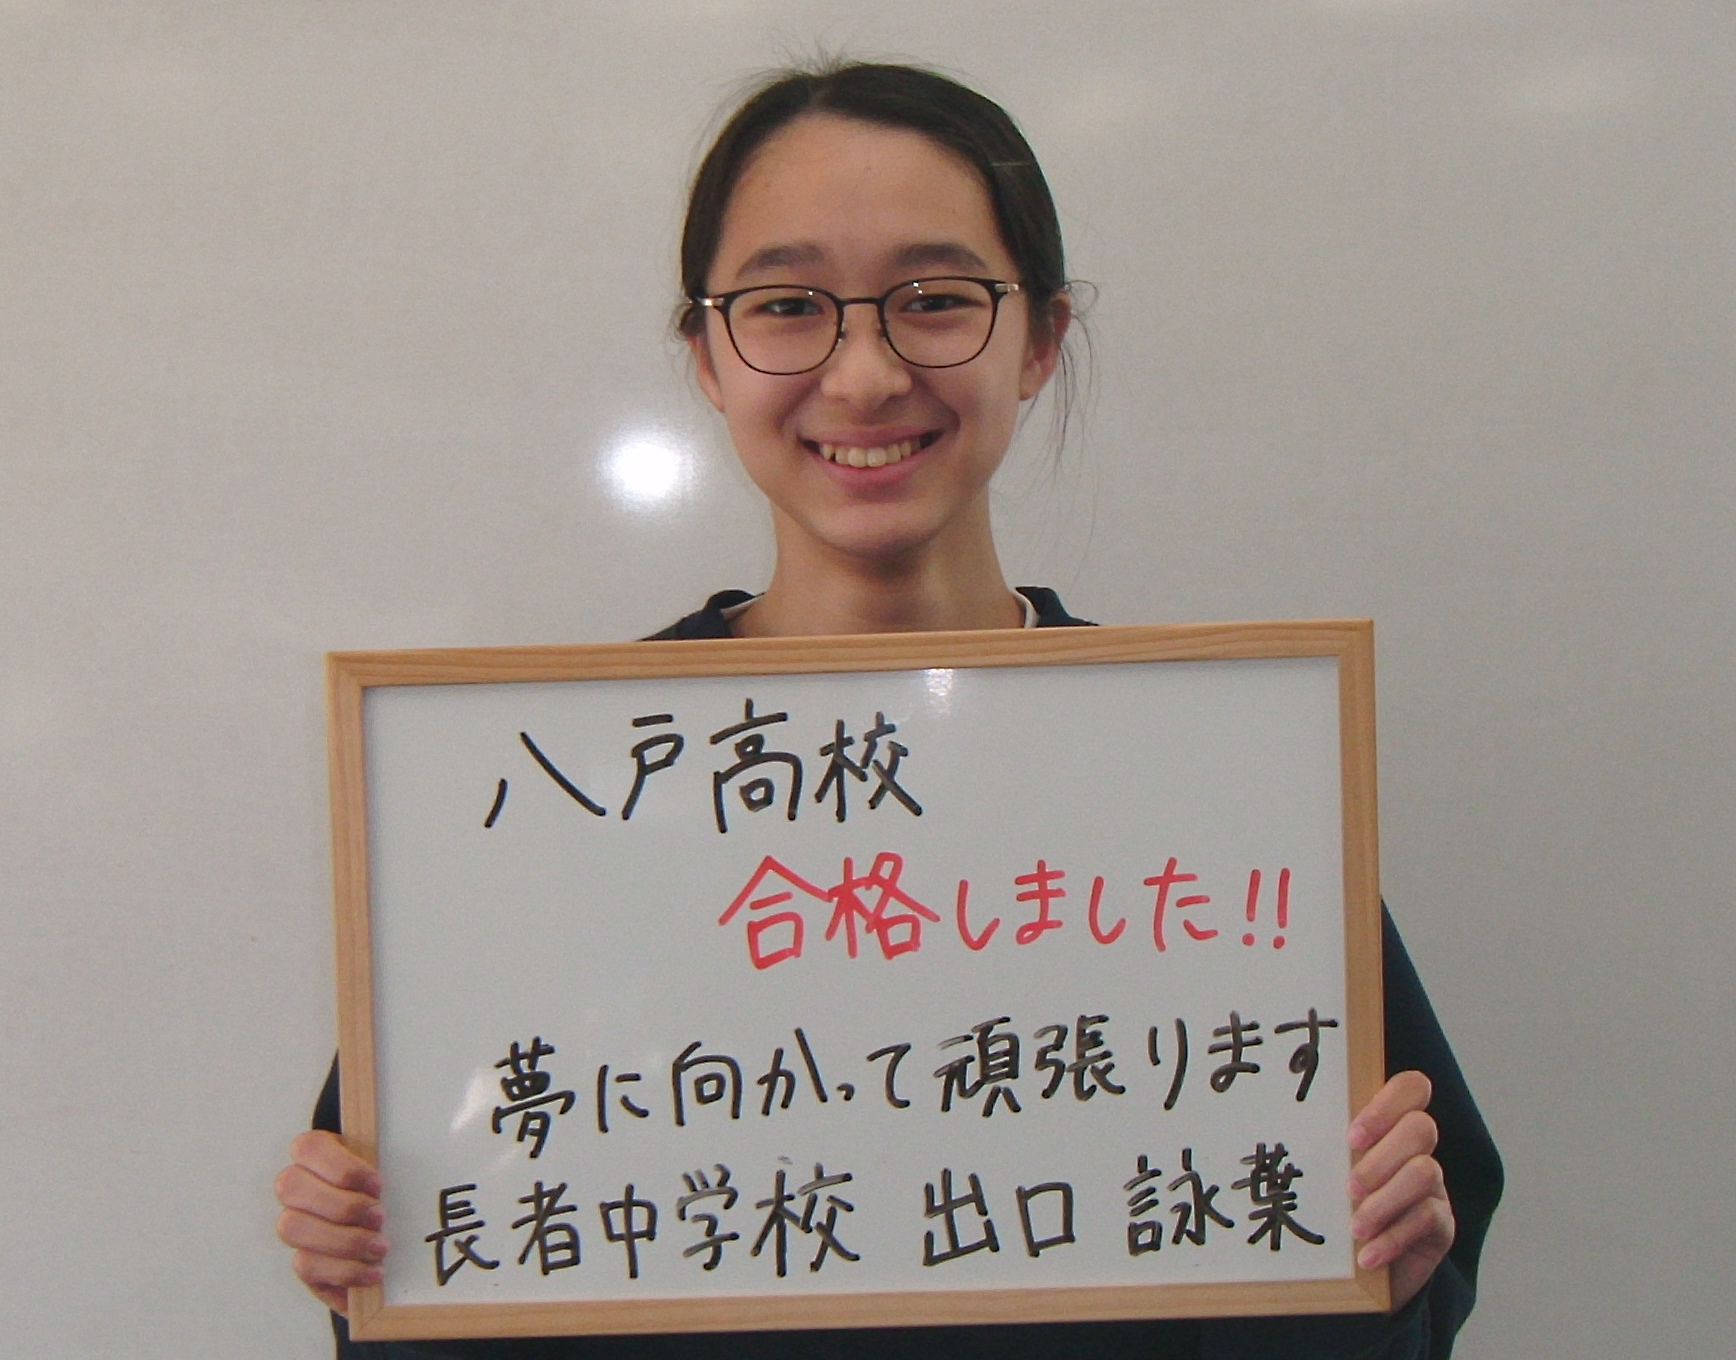 八戸高校
合格しました!!
夢に向かって頑張ります
長者中学校 出口 詠葉